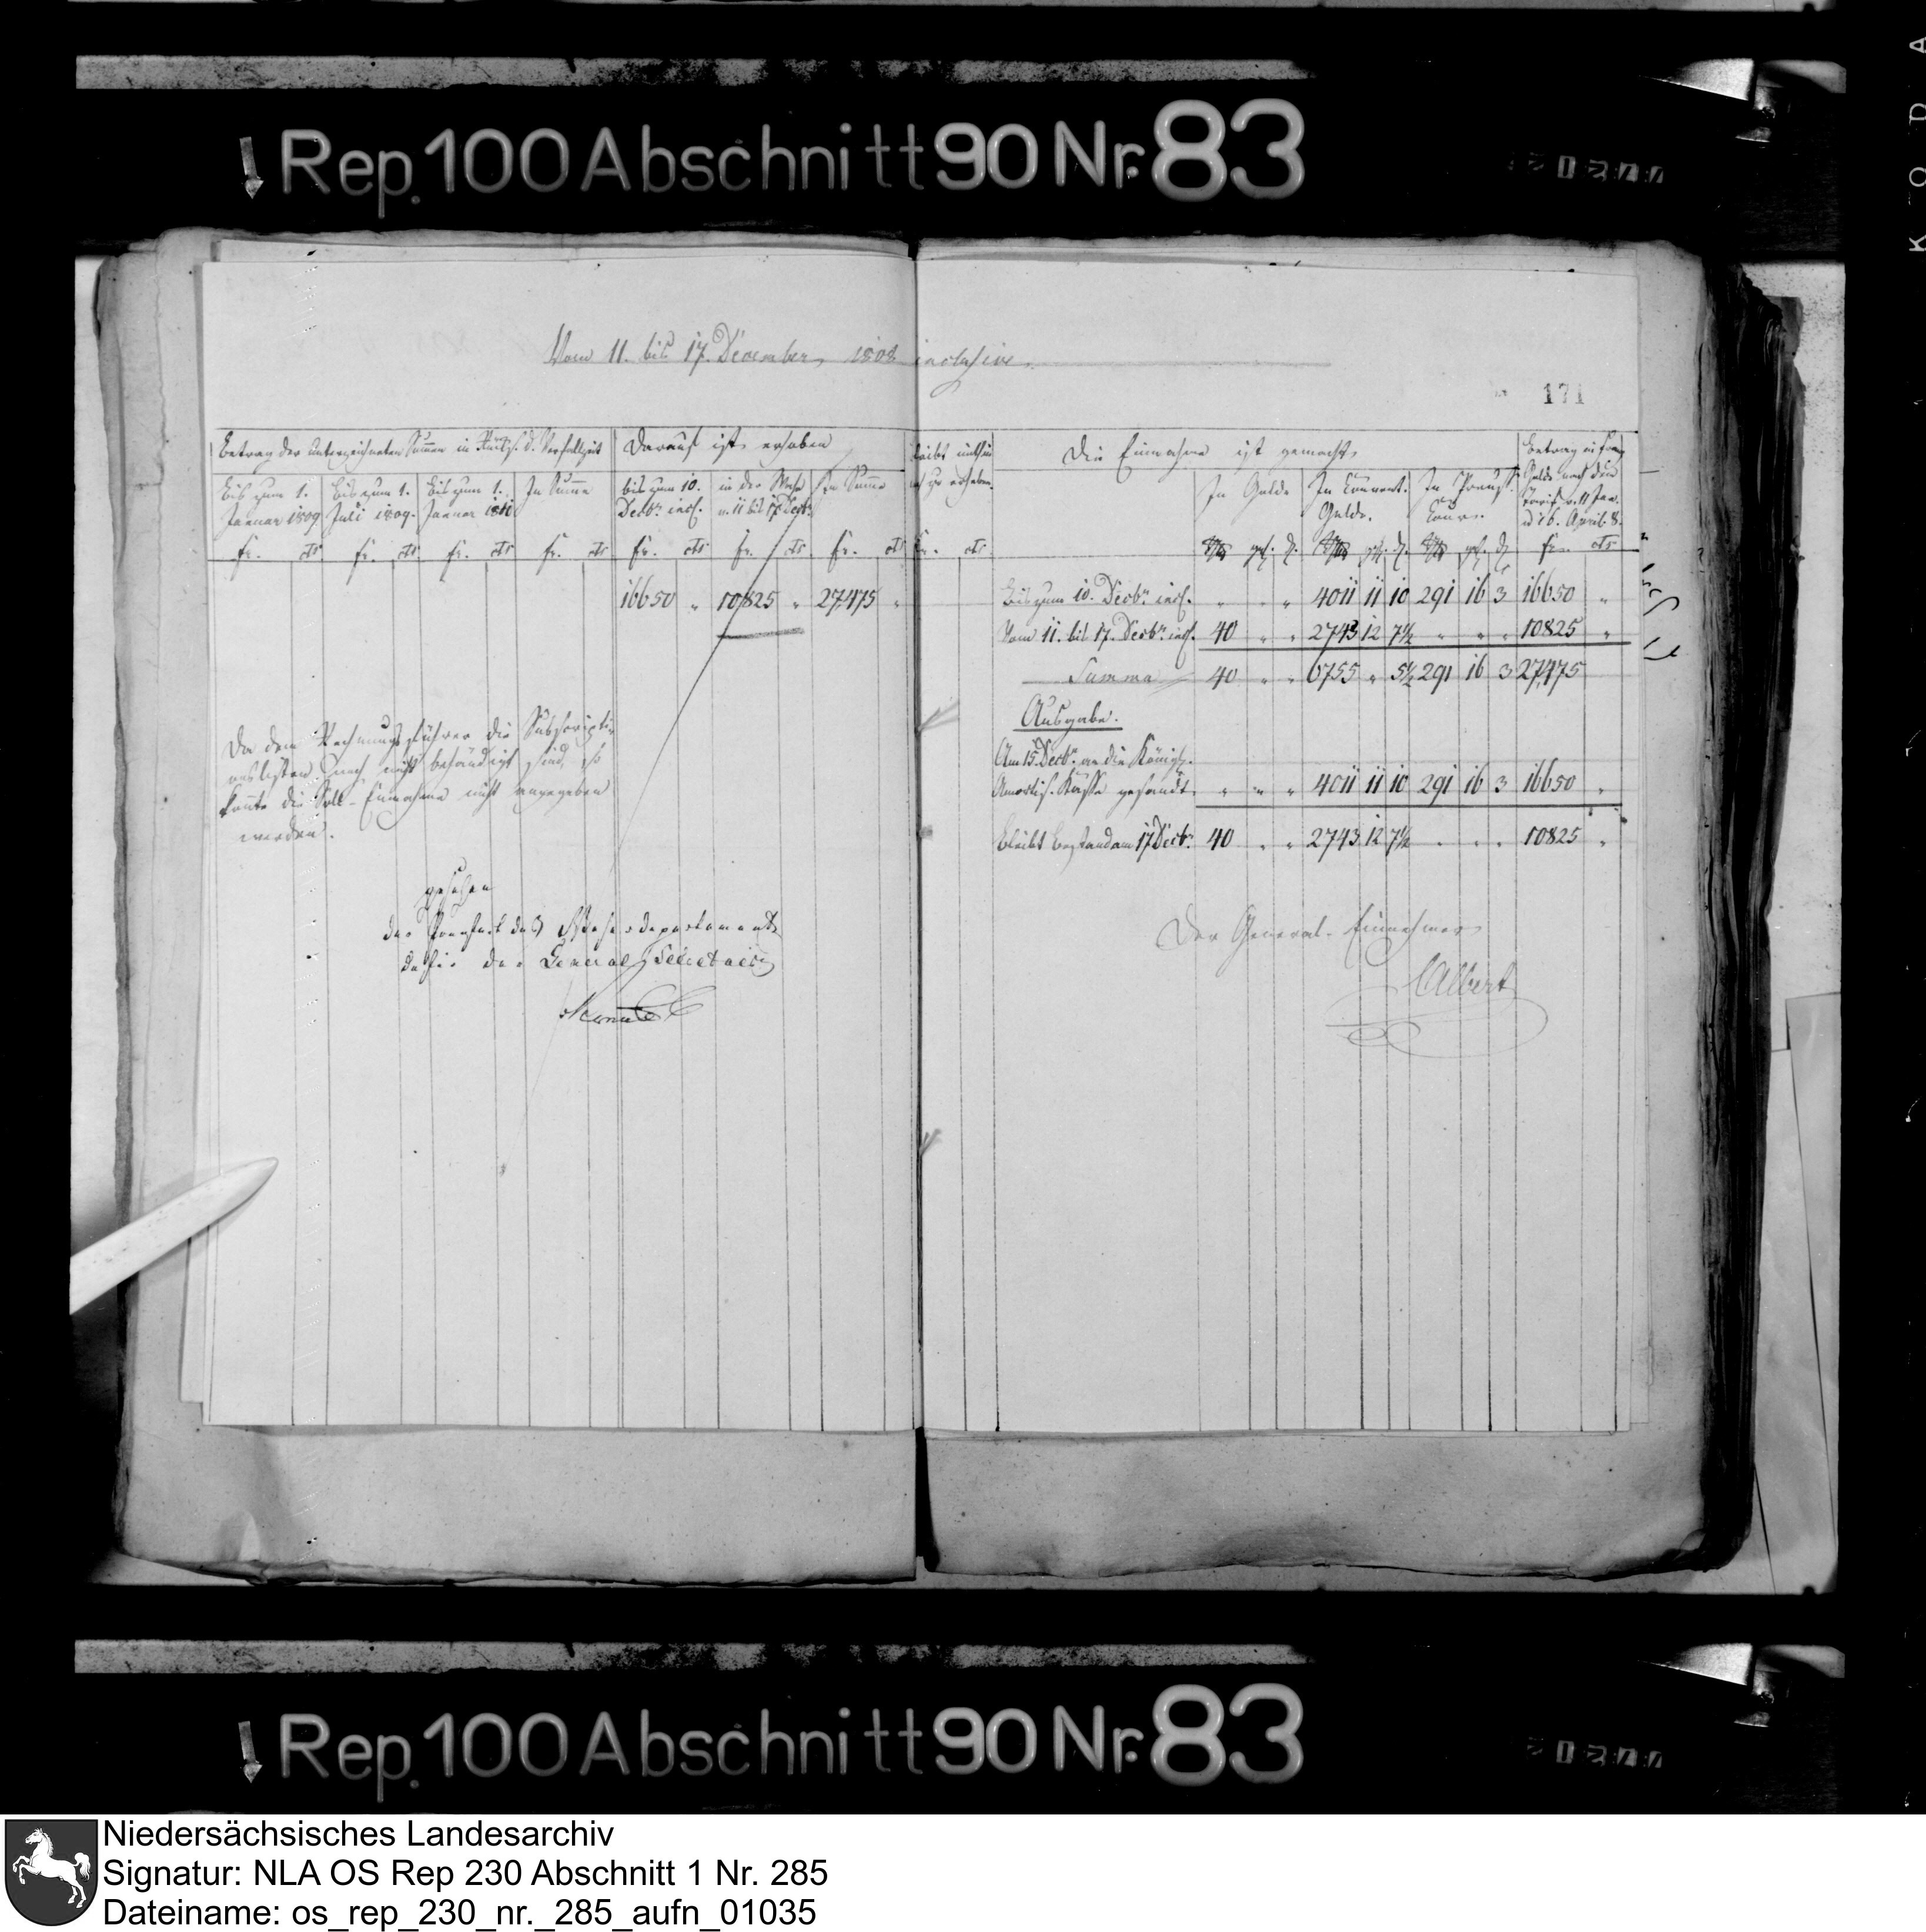 Rep. 100 Abschnitt 90 Nr. 83
KODA
Vom 11. bis 17. December 1808 inclusive.
171
Betrag der unterzeichneten Summen in d. Verfallzeit
Bis zum 1. Januar 1809
Bis zum 1. Juli 1809.
Bis zum 1. Januar 1810
In Summa
fr. cts fr. cts fr. cts fr. cts
Darauf ist erhoben
bis zum 10. Decbr. incl.
in der Woche v. 11 bis 17 Decbr.
In Summa
fr. cts fr. cts fr. cts
bleibt mithin noch zu erheben.
fr. cts
16650 " 10825 " 27,475 "
Da dem Rechnungsführer die Subscriptionslisten noch nicht behändigt sind, so
konnte die Soll-Einnahme nicht angegeben
werden.
gesehen
der Praefect des Weserdepartements
dafür der General Secretair
Die Einnahme ist gemacht
In Golde
In Convent. Gelde.
In Preuß. Cour.
Betrag in Franz.
Gelde nach dem
Tarif v. 11 Jan.
u. 6. April. 8.
fr. cts
Bis zum 10. Decbr. incl. " " " 4011 11 10 291 16 3 16650 "
Vom 11. bis 17. Decbr. incl. 40 " " 2743 12 7½ " " " 10825 "
Summa 40 " " 6755 " 5½ 291 16 3 27,475
Ausgabe.
Am 15. Decbr. an die Königl.
Amortis. Kasse gesandt " " " 4011 11 10 291 16 3 16650 "
bleibt Bestand am 17 Decbr. 40 " " 2743 12 7½ " " " 10825 "
Der General-Einnehmer
Albert
Rep. 100 Abschnitt 90 Nr. 83
Niedersächsisches Landesarchiv
Signatur: NLA OS Rep 230 Abschnitt 1 Nr. 285
Dateiname: os_rep_230_nr._285_aufn_01035